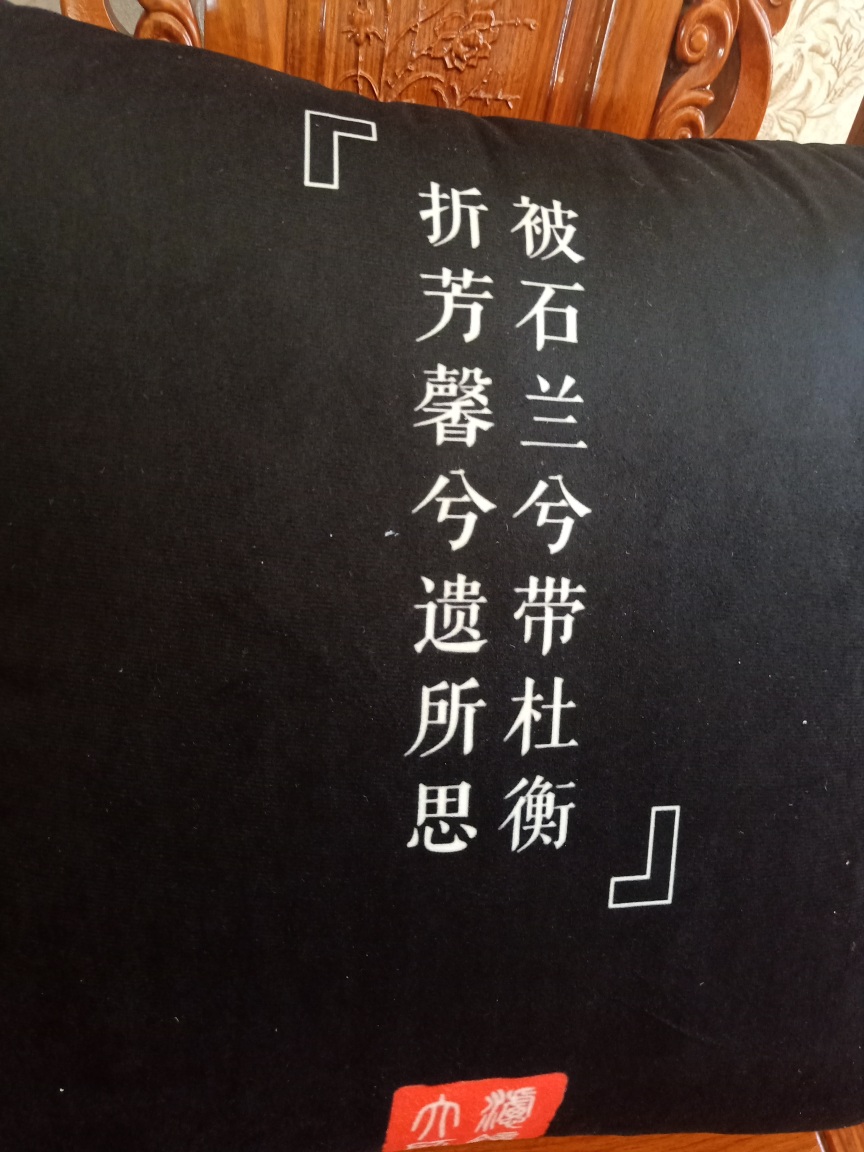 被石兰兮带杜衡
折芳馨兮遗所思